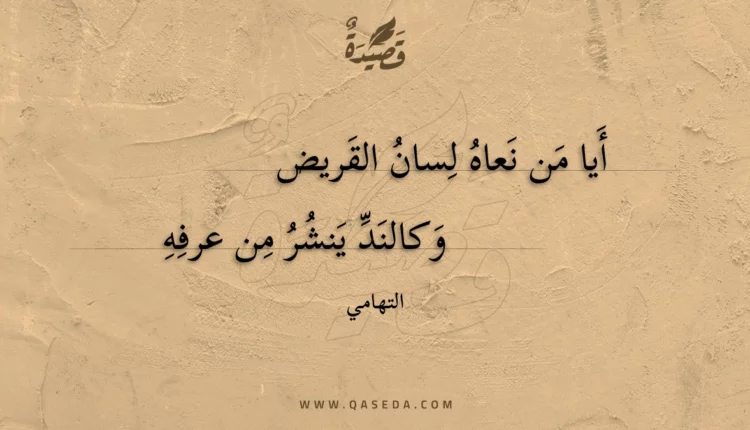 قَصِيْدَةٌ
أَيا مَن نَعاهُ لِسانُ القَريض
وَكالنَدِّ يَنشُرُ مِن عرفِهِ
التهامي
WWW.QASEDA.COM